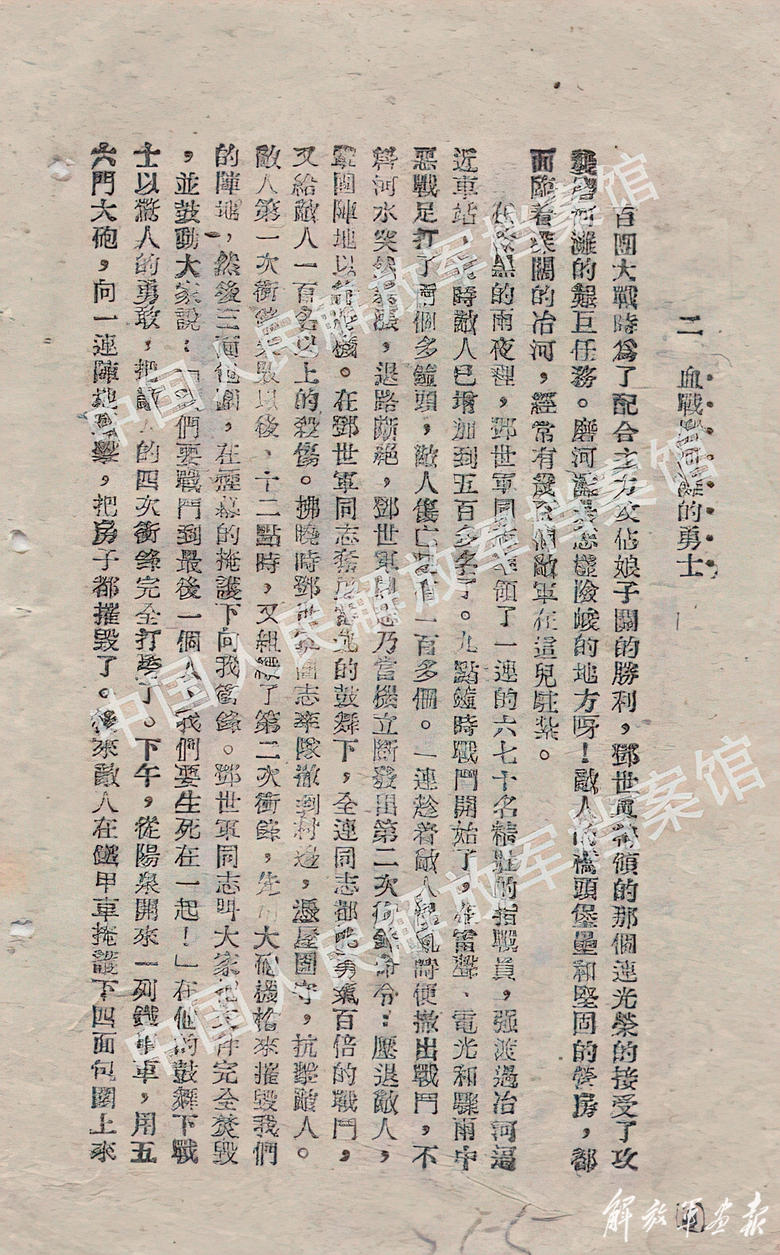 二 血戰磨河灘的勇士
百團大戰時爲了配合主力攻佔娘子關的勝利，鄧世軍帶領的那個連光榮的接受了攻
襲磨河灘的艱巨任務。磨河灘是怎樣險峻的地方呀！敵人的橋頭堡壘和堅固的營房，都
面臨着深闊的冶河，經常有幾百個敵軍在這兒駐紮。
在深黑的雨夜裡，鄧世軍同志率領了一連的六七十名精壯的指戰員，强渡過冶河逼
近車站，時敵人已增加到五百多名了。九點鐘時戰鬥開始了，在雷聲、電光和驟雨中
惡戰足打了兩個多鐘頭，敵人傷亡 有一百多個。一連趁着敵人混亂時便撤出戰鬥，不
料河水突然暴漲，退路斷絕，鄧世軍同志乃當機立斷發出第二次衝鋒命令：壓退敵人，
鞏固陣地以待時機。在鄧世軍同志奮 的鼓舞下，全連同志都以勇氣百倍的戰鬥，
又給敵人一百名以上的殺傷。拂曉時鄧世軍同志率隊撤到村邊，憑屋固守，抗擊敵人。
敵人第一次衝鋒失敗以後，十二點時，又組織了第二次衝鋒，先用大砲機槍來摧毀我們
的陣地，然後三面包圍，在煙幕的掩護下向我衝鋒。鄧世軍同志叫大家把文件完全焚毀
，並鼓動大家說：「我們要戰鬥到最後一個人，我們要生死在一起！」在他的鼓舞下戰
士以驚人的勇敢，把敵人的四次衝鋒完全打垮了。下午，從陽泉開來一列鐵甲車，用五
六門大砲，向一連陣地轟擊，把房子都摧毀了。後來敵人在鐵甲車掩護下四面包圍上來
中国人民解放军档案馆
中国人民解放军档案馆
中国人民解放军档案馆
解放军画报